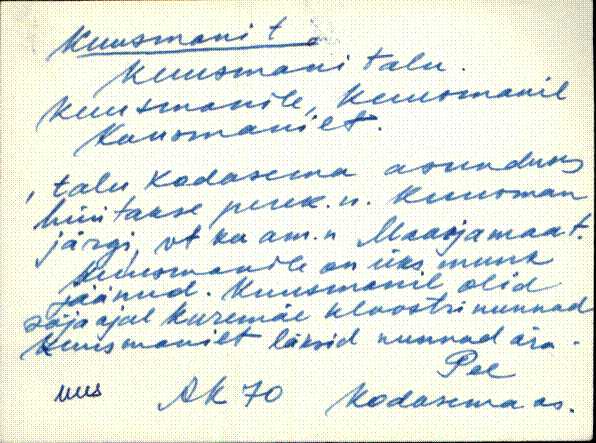 Kuusmani t
Kuusmani talu.
Kuusmanile, Kuusmanil
Kuusmanilt.
, talu Kodasema asunduses
hüütakse perek. n. Kuusman
järgi, vt ka am. n Maarjamaa t.
Kuusmanile on üks munk
jäänud. Kuusmanil olid
sõja ajal Kuremäe kloostri nunnad
Kuusmanilt läksid nunnad ära.
Pee
uus AK 70 Kodasema as.